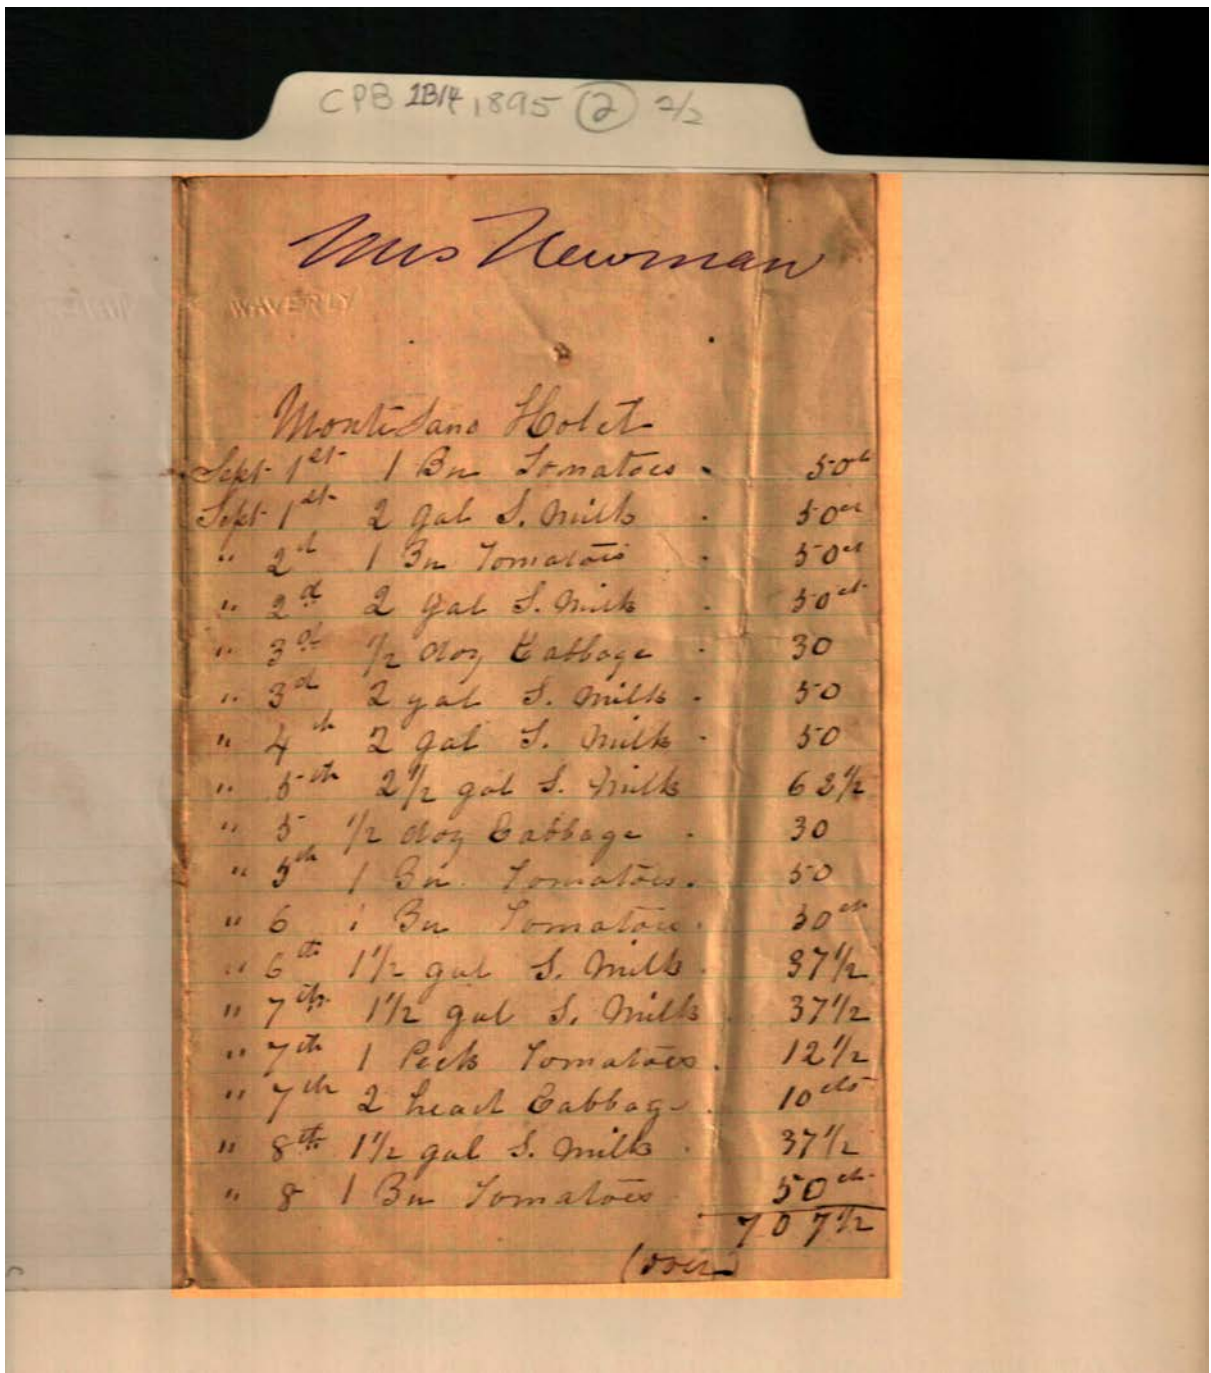 CPB 1B14 1895 (2) 2/2
Mrs Newman
WAVERLY
Monte Sano Hotel
Sept 1st 1 Bu Tomatoes . 50ct
Sept 1st 2 gal S. Milk . 50ct
" 2d 1 Bu Tomatoes . 50ct
" 2d 2 gal S. Milk . 50ct
" 3d 1/2 doz Cabbage . 30
" 3d 2 gal S. Milk . 50
" 4th 2 gal S. Milk . 50
" 5th 2 1/2 gal S. Milk 62 1/2
" 5 1/2 doz Cabbage . 30
" 5th 1 Bu Tomatoes . 50
" 6 1 Bu Tomatoes . 50ct
" 6th 1 1/2 gal S. Milk . 37 1/2
" 7th 1 1/2 gal S. Milk . 37 1/2
" 7th 1 Peck Tomatoes . 12 1/2
" 7th 2 head Cabbage . 10cts
" 8th 1 1/2 gal S. Milk . 37 1/2
" 8 1 Bu Tomatoes 50ct
7 07 1/2
(over)